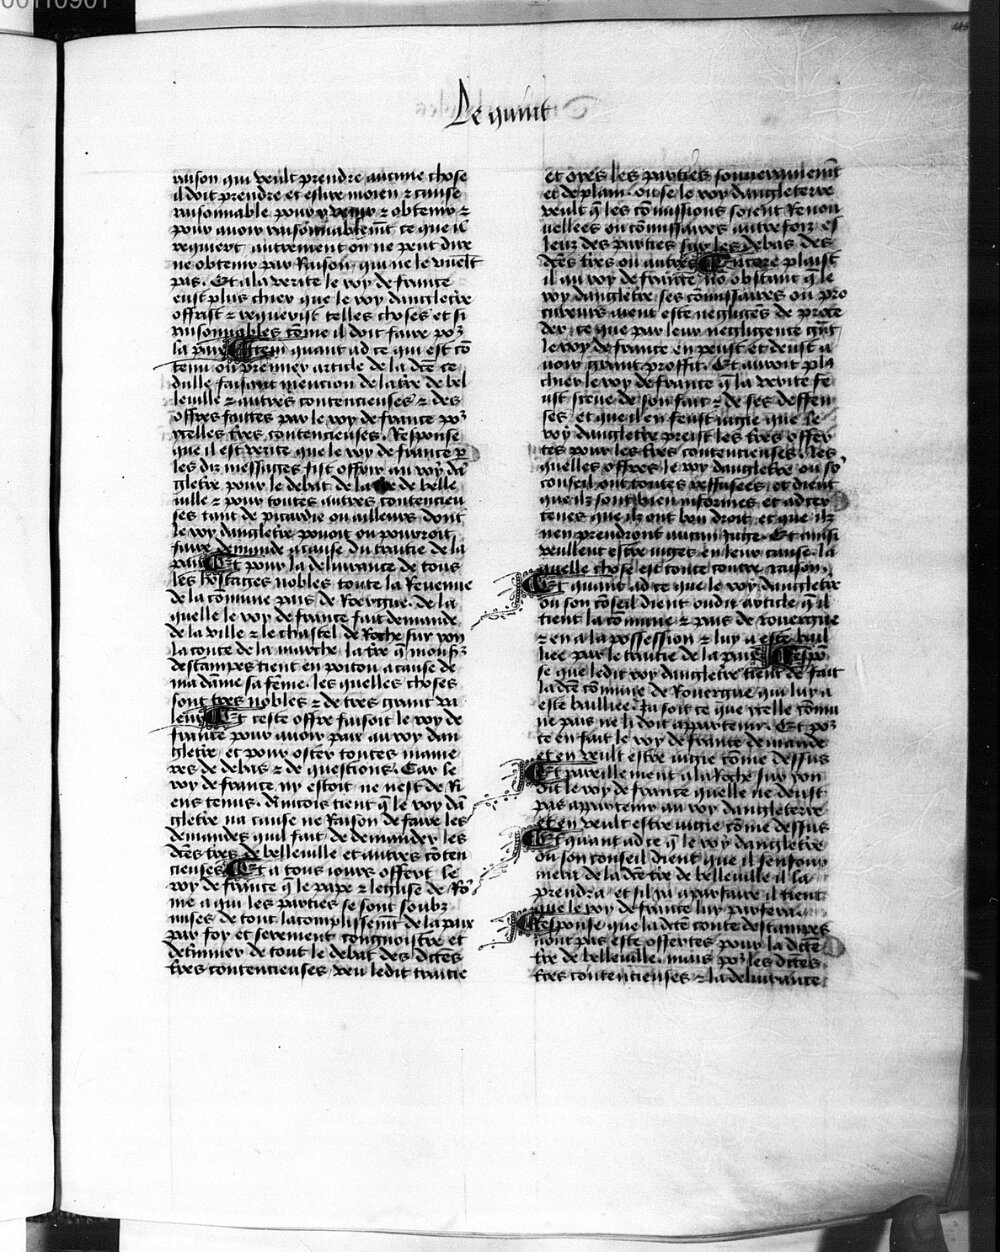 De quint
raison qui veult prendre aucune chose
il doit prendre et eslire moien & cause
raisonnable pour y venir & obtenir &
pour avoir raisonnablemt ce que il
requiert autrement on ne peut dire
ne obtenir par Raison qui ne le vuelt
pas. Et a la verite le roy de france
eust plus chier que le roy dangletre
offrist & requerist telles choses et si
raisonnables come il doit faire poz
la paix Item quant ad ce qui est co
tenu ou premier article de la dce ce
dulle faisant mencion de la tre de bel
leville & autres contencieuses & des
offres faictes par le roy de france poz
ycelles tres contencieuses. Response
que il est verite que le roy de france p
les diz messages fist offrir au roy da
gletre pour le debat de la tre de belle
ville & pour toutes autres contencieu
ses tant de picardie ou ailleurs dont
le roy dangletre povoit ou pourroit
faire demande a cause du traitie de la
paix Et pour la delivrance de tous
les hostages nobles toute la Revenue
de la comune pais de Roergue. de la
quelle le roy de france fait demande
de la ville & le chastel de Roche sur yon
la conte de la marche la tre q monsz
destampes tient en poitou a cause de
ma dame sa feme. les quelles choses
sont tres nobles & de tres grant va
leur Et ceste offre faisoit le roy de
france pour avoir paix au roy dan
gletre et pour oster toutes manie
res de debas & de questions. Car le
roy de france ny estoit ne nest de Ri
ens tenus. Aincois tient q le roy da
gletre na cause ne Raison de faire les
demandes quil fait de demander les
dces tres de belleville et autres coten
cieuses Et a tous iours offert le
roy de france q le pape & leglise de Ro
me a qui les parties se sont soubz
mises de tout lacomplissemt de la paix
par foy et serement congnoistre et
determiner de tout le debat des dces
tres contencieuses veu ledit traictie
et oyes les parties souverainemt
et de plain. ou se le roy dangleterre
veult q les comissions soient Renou
vellees ou comissaires autrefoiz es
leuz des parties sur les debas des
dces tres ou autres Encore plaist
il au roy de france no obstant q le
roy dangletre ses comissaires ou pro
cureurs aient este negligens de proce
der. ce que par leur negligence
le roy de france en peust et deust a
voir grant proffit. Et auroit pl9
chier le roy de france q la verite fe
ust sceue de son fait & de ses deffen
ses. et que il en feust iugie que le
roy dangletre preist les tres offer
tes pour les tres contencieuses. les
quelles offres le roy dangletre ou so
conseil ont toutes reffusees. et dient
que ilz sont bien informes et ad cer
tenes que ilz ont bon droit. et que ilz
nen prendront aucun iuge. Et ainsi
veullent estre iuges en leur cause. la
quelle chose est toute contre raison.
Et quant ad ce que le roy dangletre
ou son coseil dient ou dit article q il
tient la comune & pais de rouergue
& en a la possession & luy a este bail
liee par le traitie de la paix Respo
se que ledit roy dangletre tient de fait
la dce comune de Rouergue qui luy a
este bailliee Ja soit ce que ycelle comu
ne pais ne li doit appartenir. Et poz
ce en fait le roy de france demande
et en veult estre iugie come dessus
Et pareillement a la Roche sur yon
dit le roy de france quelle ne deust
pas appartenir au roy dangleterre
et en veult estre iugie come dessus
Et quant ad ce q le roy dangletre
ou son conseil dient que il
de la dce tre de belleville il la
prendra. et sil y a parfaire il tient
que le roy de france luy parfera.
Response que la dce conte destampes
nont pas este offertes pour la dce
tre de belleville. mais poz les dces
tres contencieuses & la delivrance